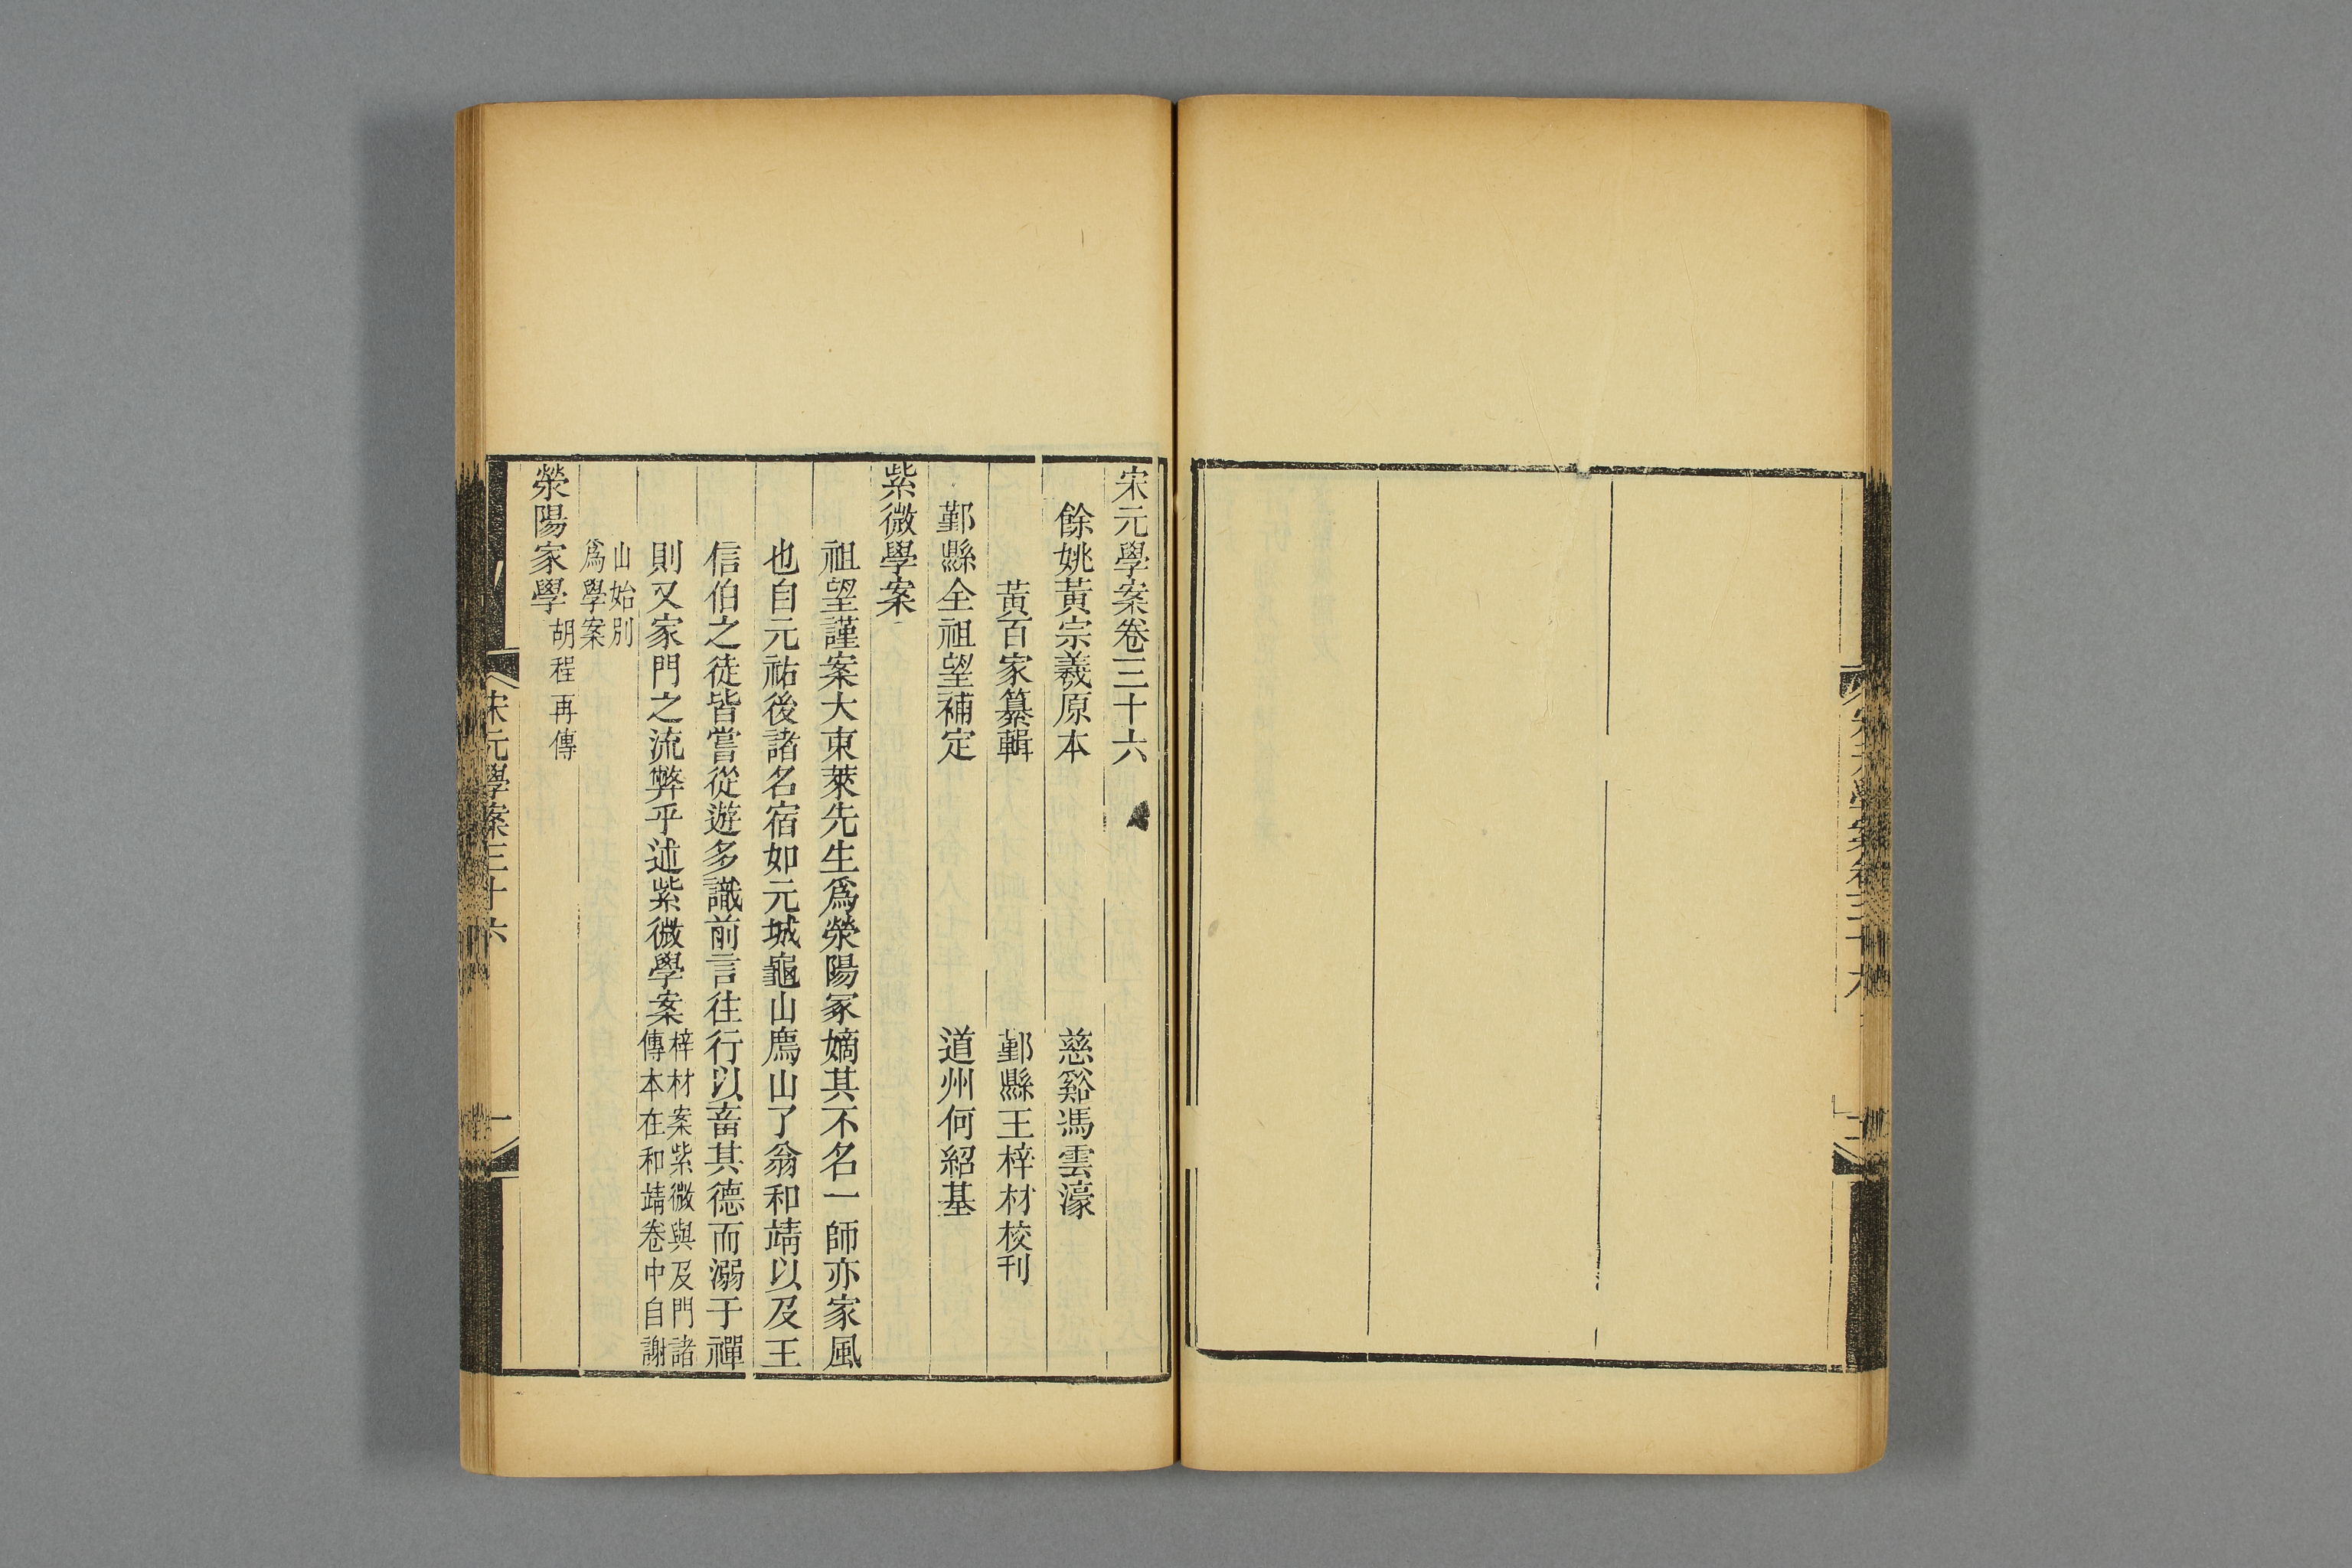 宋元學案卷三十六
宋元學案卷三十六
餘姚黃宗羲原本　慈谿馮雲濠
黃百家纂輯　鄞縣王梓材校刊
鄞縣全祖望補定　道州何紹基
紫微學案
祖望謹案大東萊先生爲滎陽冢嫡其不名一師亦家風
也自元祐後諸名宿如元城龜山廌山了翁和靖以及王
信伯之徒皆嘗從遊多識前言往行以畜其德而溺于禪
則又家門之流弊乎述紫微學案梓材案紫微與及門諸
傳本在和靖卷中自謝
山始別
爲學案
滎陽家學胡程再傳
宋元學案三十六
一